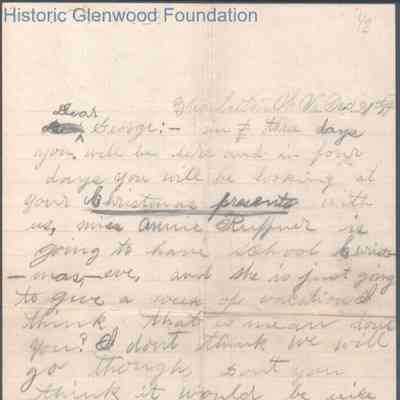 Historic Glenwood Foundation
Dear
George:- in three days
you will be here and in four
days you will be looking at
your Christmas presents with
us, miss Annie Ruffner is
going to have school Christ-
-mas, eve, and she is just going
to give a week of vacation I
think that is mean dont
you? I dont think we will
go though, dont you
think it would be nice